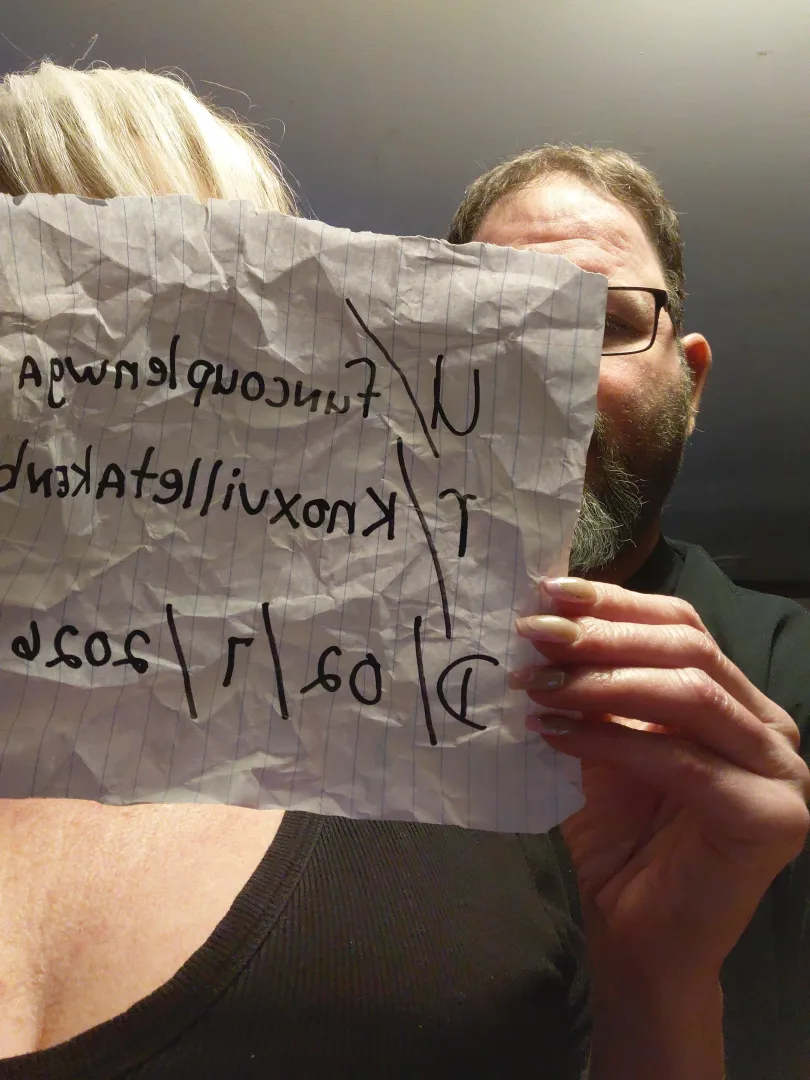 U/funcouplenwgA
r/KnoxvilletAKEN
D/02/7/2026